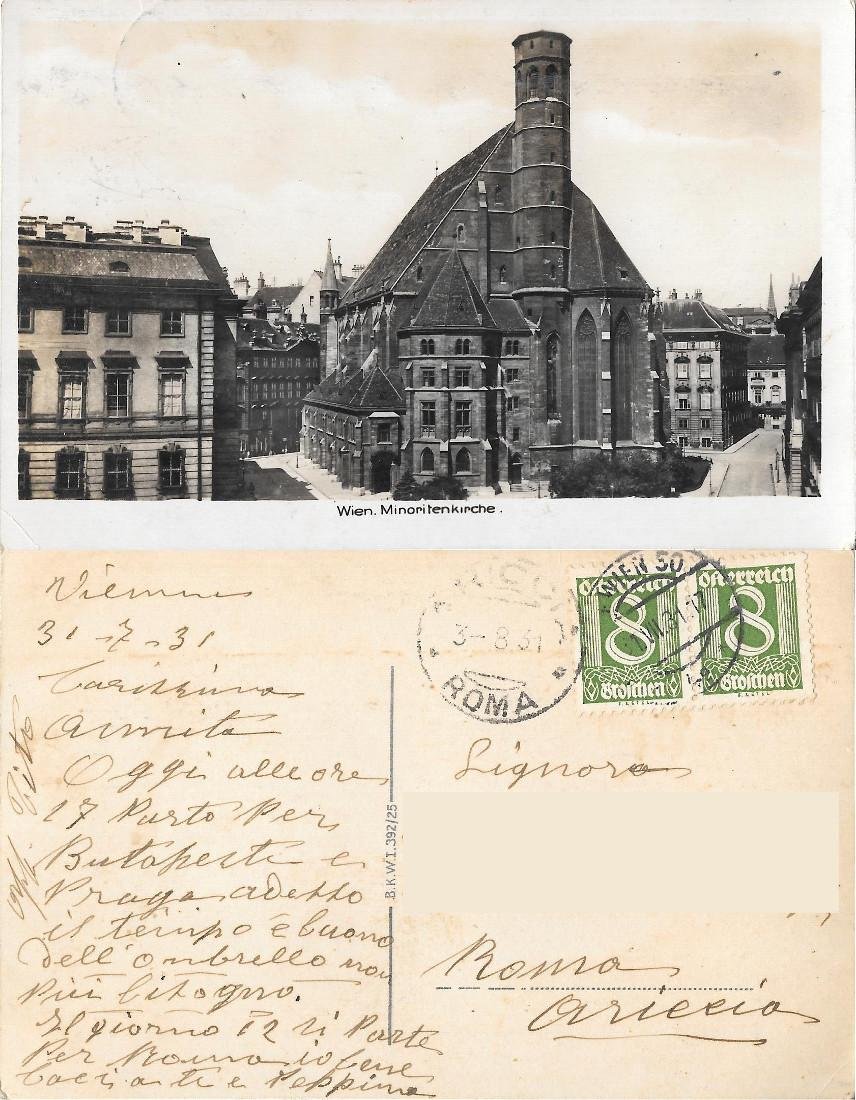 Wien. Minoritenkirche.
Vienna
31-7-31
Carissima
Annita
Oggi alle ore
17 Parto Per
Butapest e
Praga adesso
il tempo è buono
dell'ombrello non
Più bitogno.
Il giorno 12 si Parte
Per Roma io bene
baci a te e Peppino
aff. Pito
B.K.W.I. 392/25
3-8.31
ROMA
WIEN 50
Österreich
8
Groschen
Österreich
8
Groschen
Signora
Roma
Ariccia